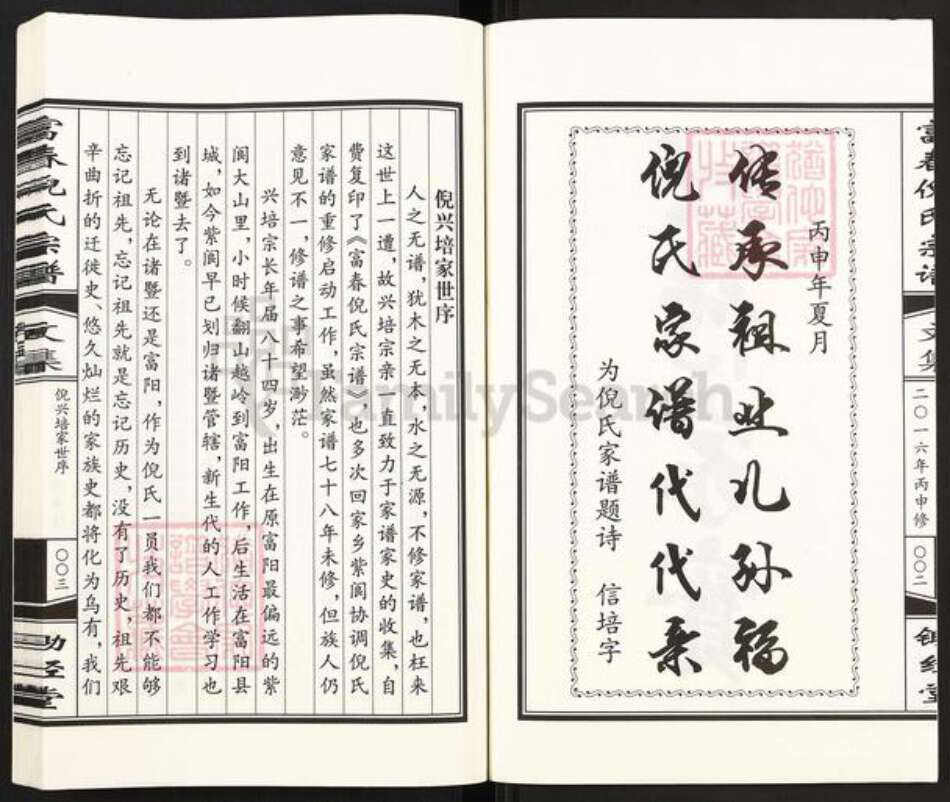 富春倪氏宗谱
文集
二〇一六年丙申修
〇〇二
丙申年夏月
传承祖业儿孙福
倪氏家谱代代亲
为倪氏家谱题诗 信培字
倪兴培家世序
人之无谱，犹木之无本，水之无源，不修家谱，也枉来
这世上一遭，故兴培宗亲一直致力于家谱家史的收集，自
费复印了《富春倪氏宗谱》也多次回家乡紫阆协调倪氏
家谱的重修启动工作，虽然家谱七十八年未修，但族人仍
意见不一，修谱之事希望渺茫。
兴培宗长年届八十四岁，出生在原富阳最偏远的紫
阆大山里，小时候翻山越岭到富阳工作，后生活在富阳县
城，如今紫阆早已划归诸暨管辖，新生代的人工作学习也
到诸暨去了。
无论在诸暨还是富阳，作为倪氏一员我们都不能够
忘记祖先，忘记祖先就是忘记历史，没有了历史，祖先艰
辛曲折的迁徙史、悠久灿烂的家族史都将化为乌有，我们
富春倪氏宗谱
文集
倪兴培家世序
〇〇三
FamilySearch